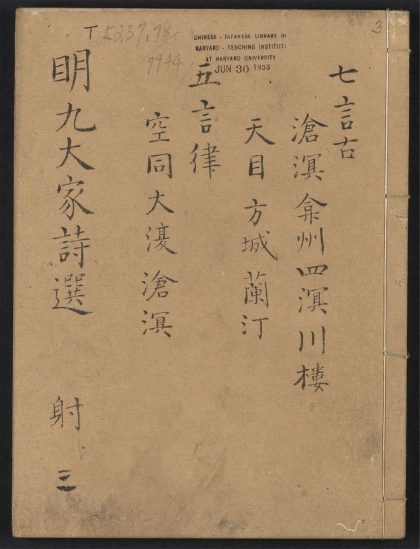 七言古
滄溟弇州四溟川樓
天目方城蘭汀
五言律
空同大復滄溟
明九大家詩選 射 三
T 5237.78
7944
CHINESE - JAPANESE LIBRARY OF
HARVARD - YENCHING INSTITUTE
AT HARVARD UNIVERSITY
JUN 30 1933
3